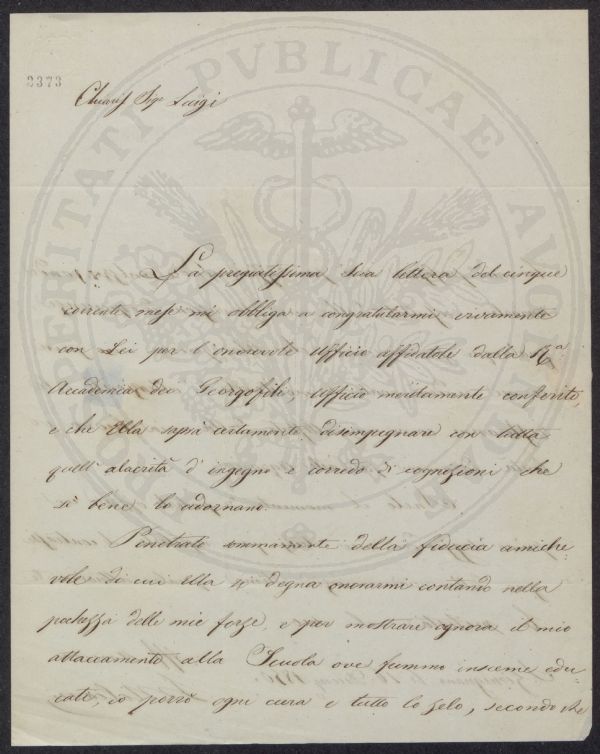 PROSPERITATI PVBLICAE AVGENDAE
2373
Chiariss Sigr Luigi
La pregiatissima Sua lettera del cinque
corrente mese mi obbliga a congratularmi vivamente
con Lei per l'onorevole Ufficio affidatole dalla R.a
Accademia dei Georgofili Ufficio meritamente conferito,
e che Ella saprà certamente disimpegnare con tutta
quell'alacrità d'ingegno e corredo di cognizioni che
sì bene lo adornano.
Penetrato sommamente della fiducia amiche
vole di cui Ella si degna onorarmi contando nella
pochezza delle mie forze, e per mostrare ognora il mio
attaccamento alla Scuola ove fummo insieme edu
cati, io porrò ogni cura e tutto lo zelo, secondo che